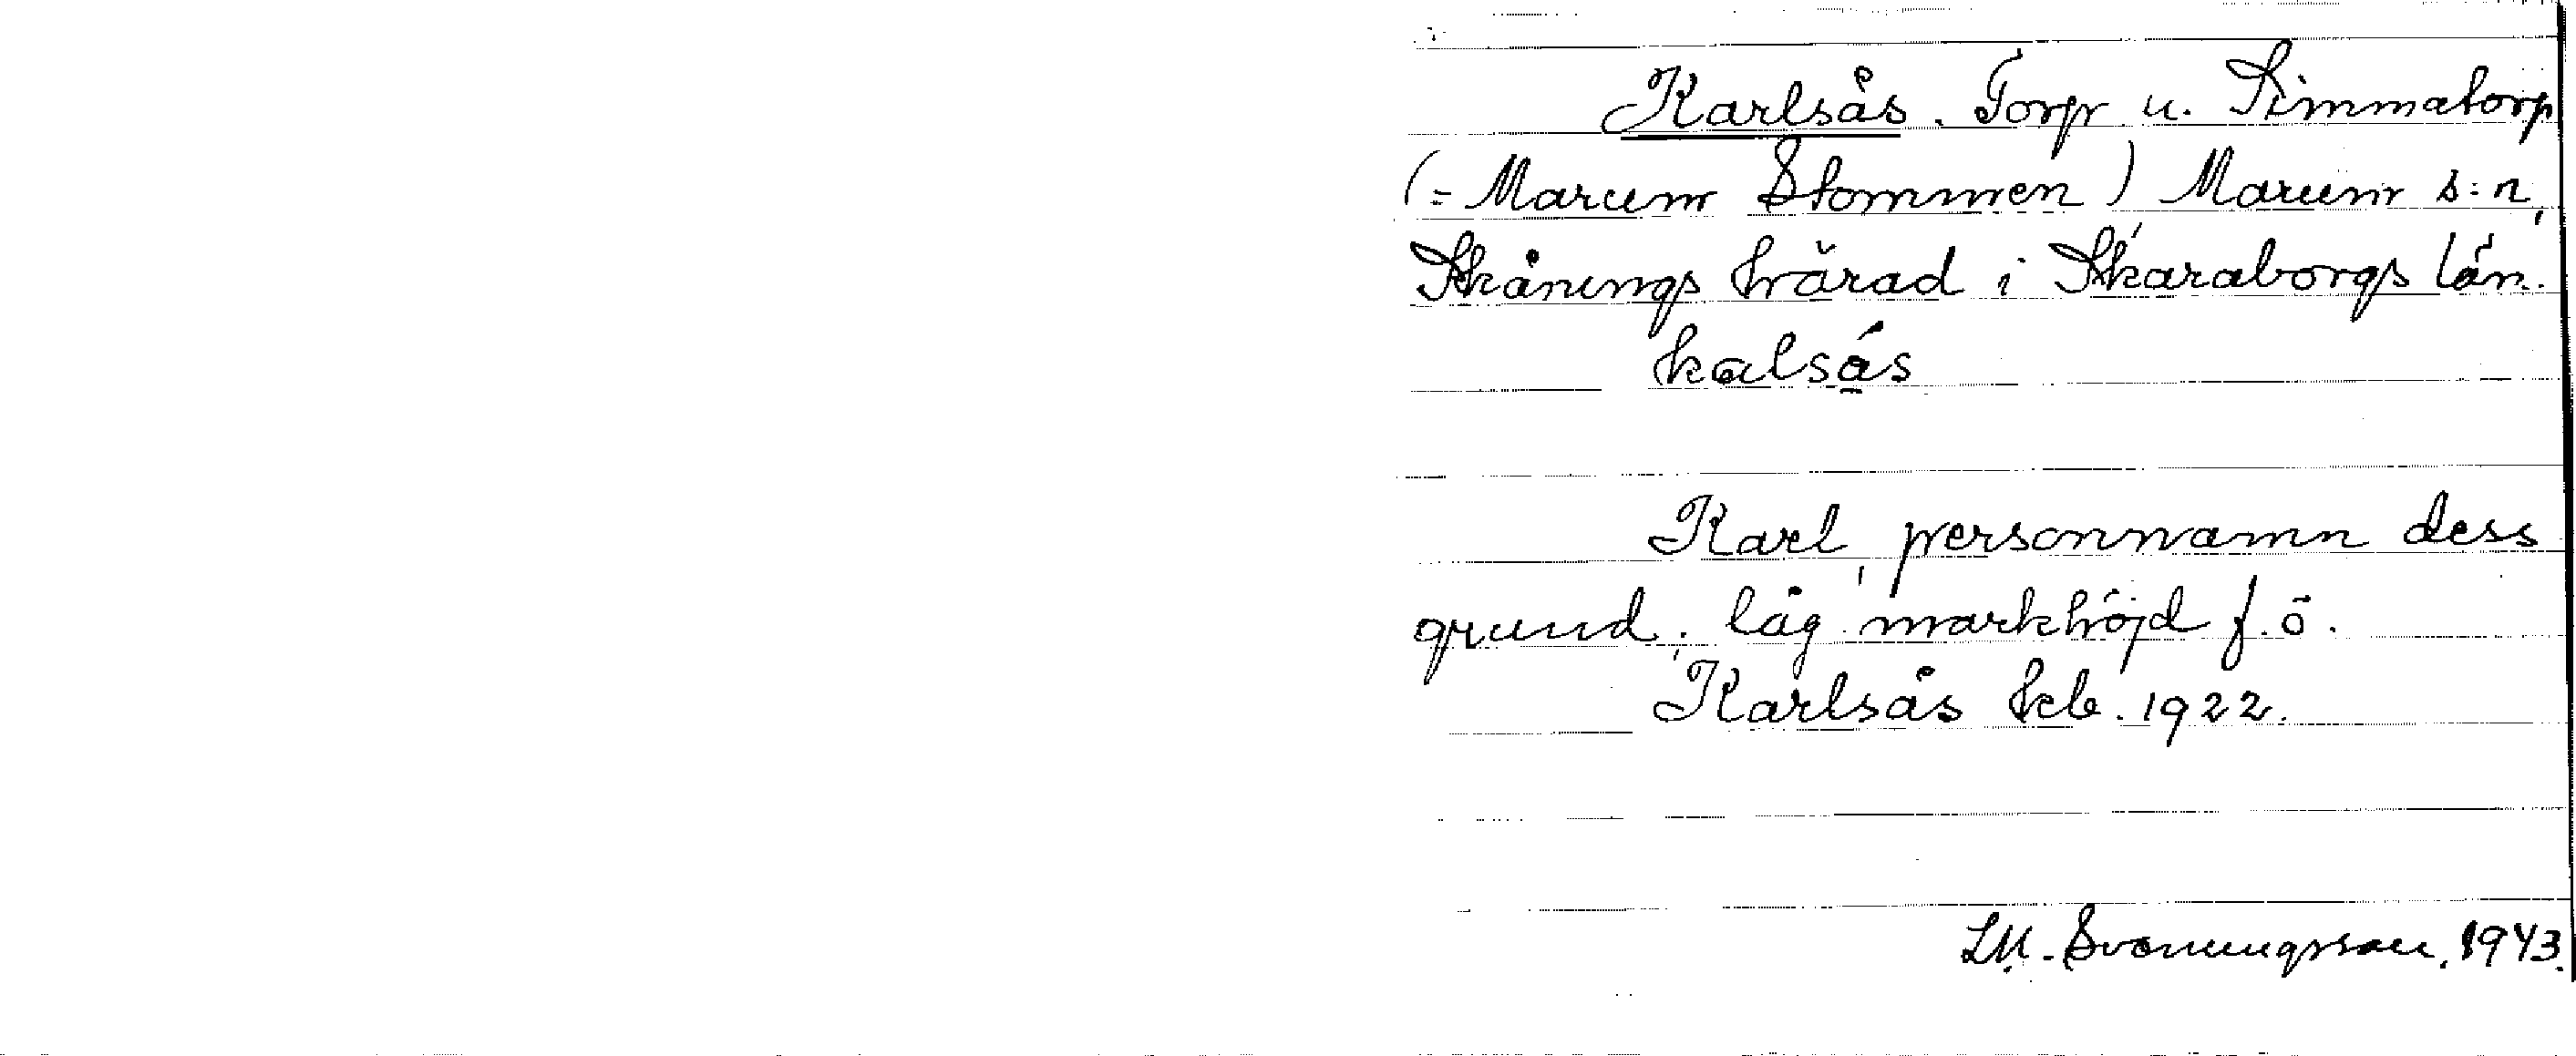 Karlsås. Torp u. Simmatorp
(= Marum Stommen) Marum s:n,
Skånings härad i Skaraborgs län.
kalsås
Karl, personnamn dess
grund; låg markhöjd f.ö.
Karlsås kb. 1922.
LM. Svanungsson. 1943.